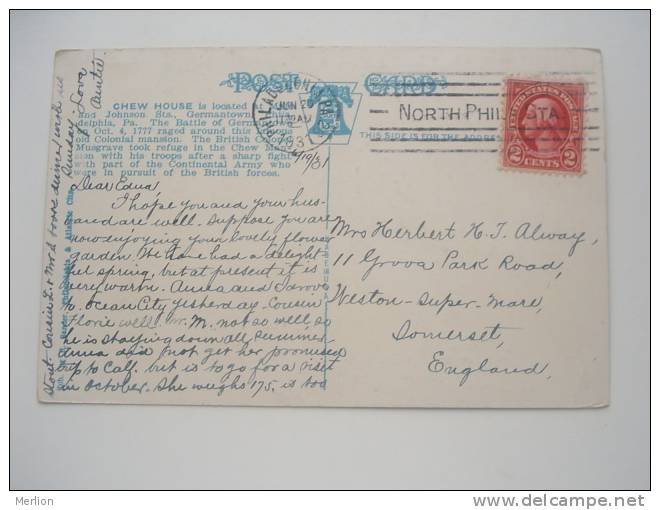 POST CARD
CHEW HOUSE is located
and Johnson Sts., Germantown, Phila-
delphia, Pa. The Battle of Germ
on Oct. 4, 1777 raged around this
old Colonial mansion. The British Colonel
Musgrave took refuge in the Chew Man-
sion with his troops after a sharp fight
with part of the Continental Army who
were in pursuit of the British forces.
THIS SIDE IS FOR THE ADDRESS
JUN 20
1931
NORTH PHILA STA.
UNITED STATES POSTAGE
2 CENTS 2
6/19/31
Dear Edna:
I hope you and your hus-
band are well. Suppose you are
now enjoying your lovely flower
garden. We have had a delight-
ful spring, but at present it is
very warm. Anna and I drove
to Ocean City yesterday. Cousin
Florie well. Mr. M. not so well, so
he is staying down all summer.
Anna did not get her promised
trip to Calf. but is to go for a visit
in October. She weighs 175, is too
stout. Cousin L. & Mr. G. were
Love
Auntie
Mrs Herbert H. T. Alway,
11 Grove Park Road,
Weston-Super-Mare,
Somerset,
England,
Merlion
www.delcampe.net